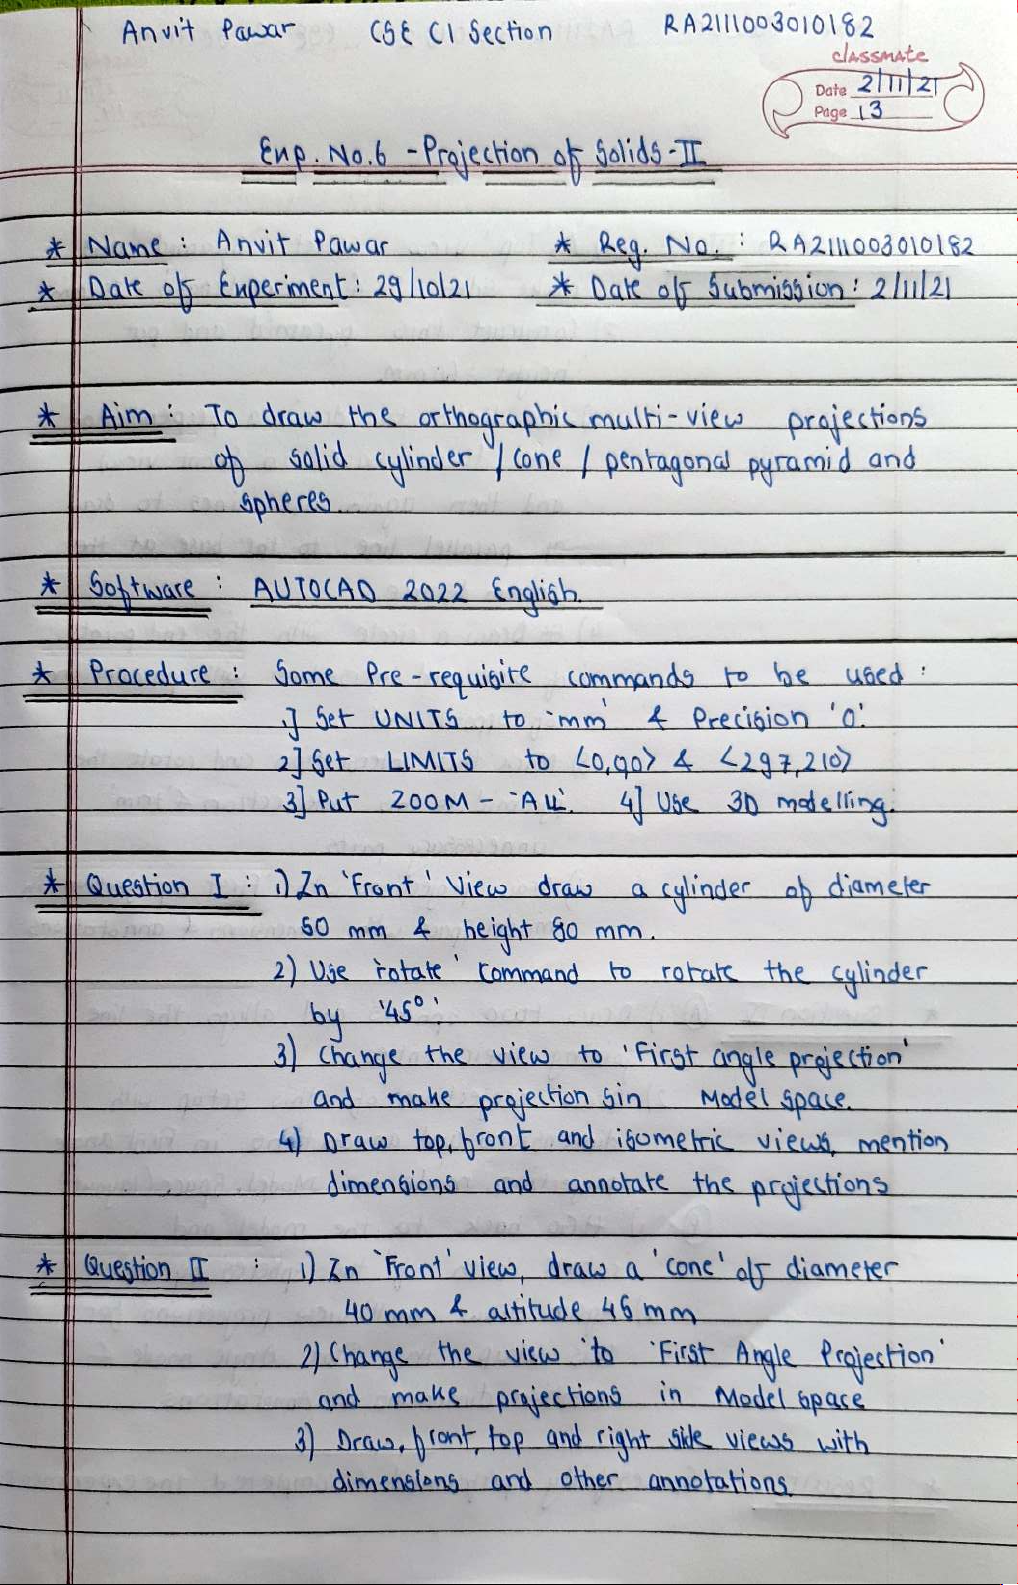 Anvit Pawar CSE C1 Section RA2111003010182
classmate
Date 2/11/21
Page 13
Exp. No.6 - Projection of Solids-II
* Name : Anvit Pawar * Reg. No. : RA2111003010182
* Date of Experiment : 29/10/21 * Date of Submission : 2/11/21
* Aim : To draw the orthographic multi-view projections
of solid cylinder / cone / pentagonal pyramid and
spheres.
* Software : AUTOCAD 2022 English.
* Procedure : Some Pre-requisite commands to be used :
1] Set UNITS to 'mm' & Precision '0'.
2] Set LIMITS to <0,90> & <297,210>
3] Put ZOOM - 'ALL'. 4] Use 3D modelling.
* Question I : 1) In 'Front' View draw a cylinder of diameter
50 mm & height 80 mm.
2) Use 'rotate' command to rotate the cylinder
by '45°'.
3) Change the view to 'First angle projection'
and make projection sin Model space.
4) Draw top, front and isometric views, mention
dimensions and annotate the projections
* Question II : 1) In 'Front' view, draw a 'cone' of diameter
40 mm & altitude 45 mm
2) Change the view to 'First Angle Projection'
and make projections in Model space
3) Draw, front, top and right side views with
dimensions and other annotations.